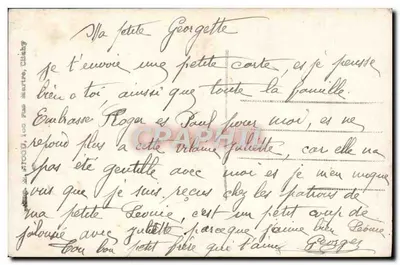 Ma petite Georgette
je t'envoie une petite carte, es je pense
bien a toi, ainsi que toute la famille.
Embrasse Roger es Paul pour moi, es ne
repond plus a cete vilaine juliette, car elle na
pas été gentille avec moi es je m'en moque
vus que je suis reçus chez les patrons de
ma petite Leonie, c'est un petit coup de
jalousie avec juliette parceque j'aime bien Leonie.
Ton bon petit frère qui t'aime Georges
rue Martre, Clichy
CPARAMA